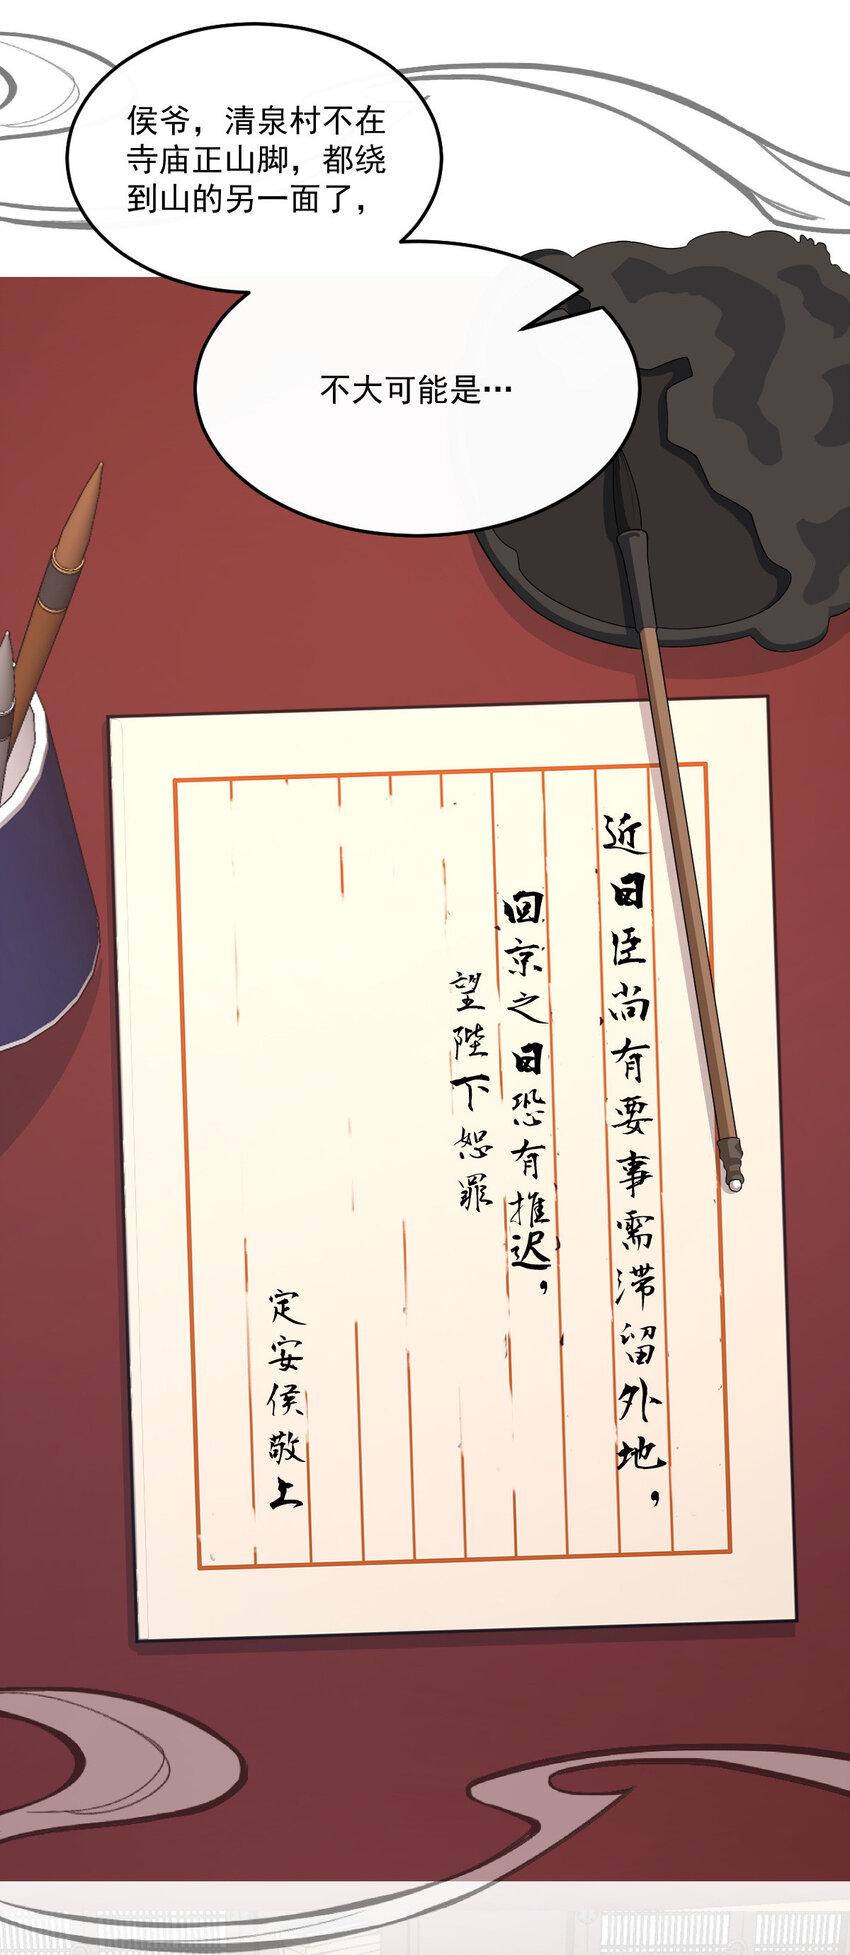 侯爷，清泉村不在
寺庙正山脚，都绕
到山的另一面了，
不大可能是…
近日臣尚有要事需滞留外地，
回京之日恐有推迟，
望陛下恕罪
定安侯敬上